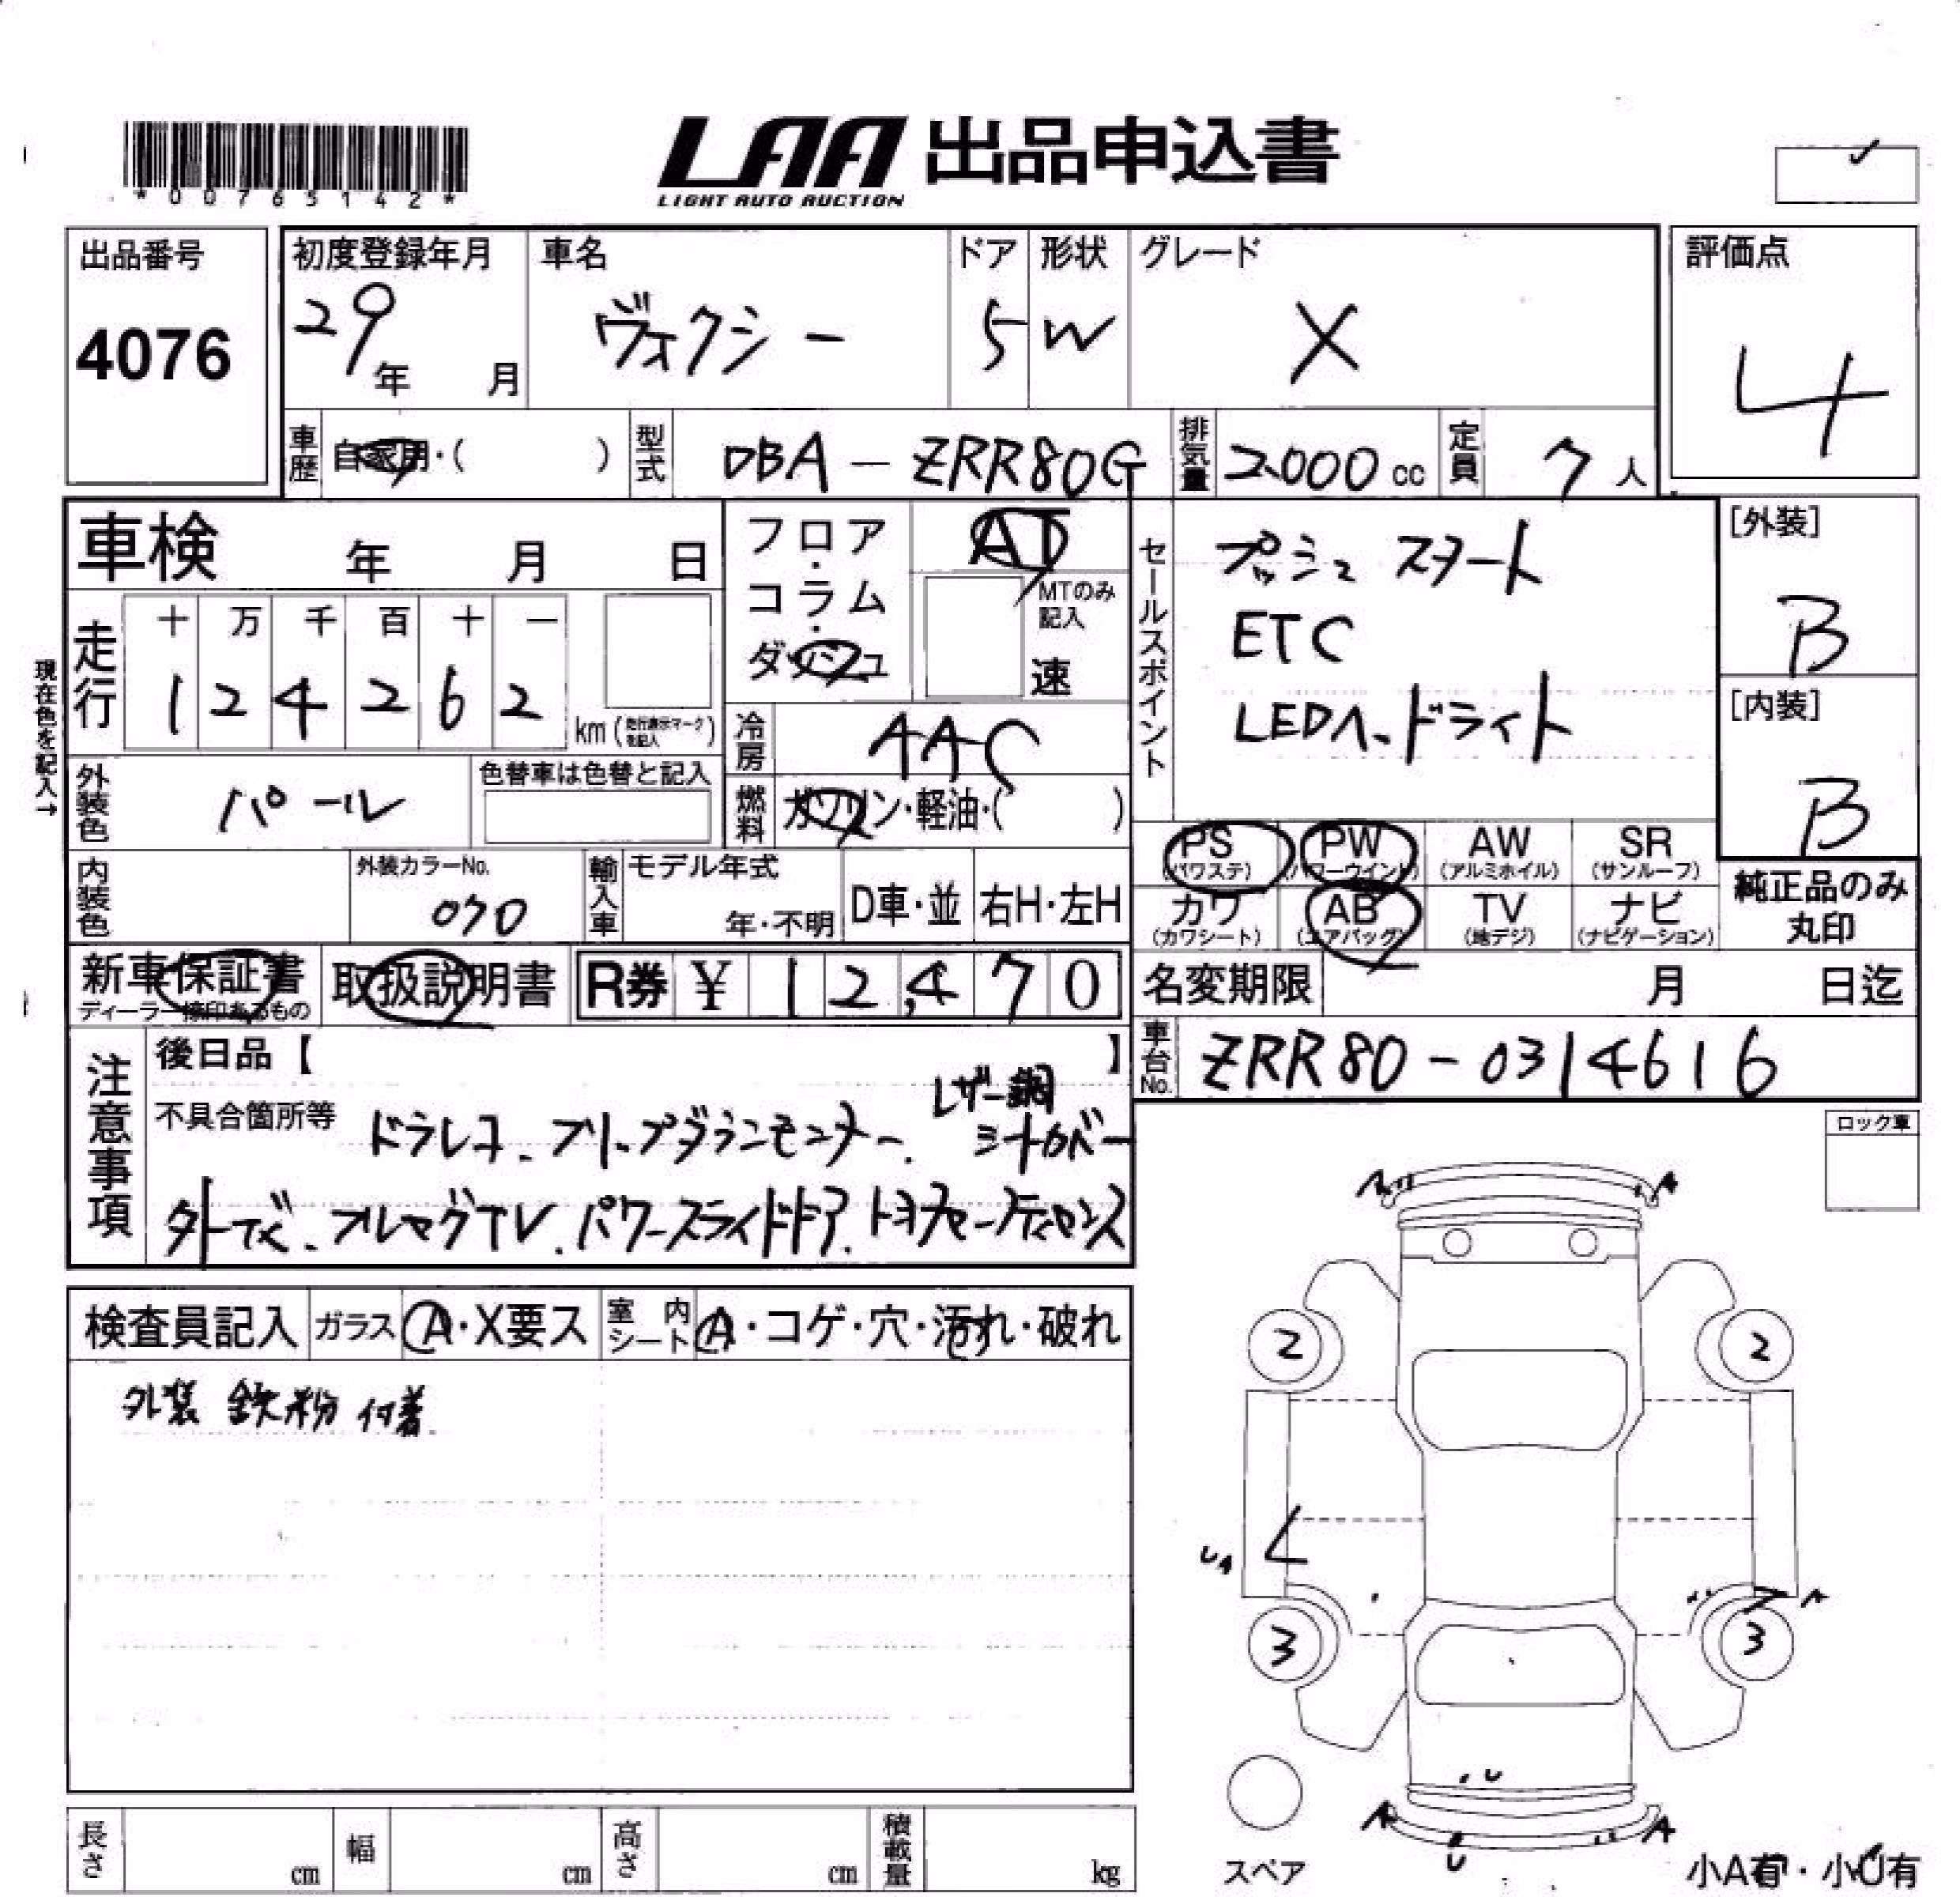 *00765142*
LAA 出品申込書
LIGHT AUTO AUCTION
出品番号
4076
初度登録年月
29年 月
車名
ヴォクシー
ドア
5
形状
W
グレード
X
評価点
4
車歴 自家用・( )
型式 DBA-ZRR80G
排気量 2000cc
定員 7人
車検 年 月 日
走行
十 万 千 百 十 一
1 2 4 2 6 2
km(走行表示マークを記入)
現在色を記入→
外装色 パール
色替車は色替と記入
内装色
外装カラーNo.
070
輸入車
モデル年式
年・不明
D車・並
右H・左H
フロア・コラム・ダッシュ
AT
MTのみ記入
速
冷房 AAC
燃料 ガソリン・軽油・( )
セールスポイント
プッシュスタート
ETC
LEDヘッドライト
[外装]
B
[内装]
B
PS (パワステ)
PW (パワーウインド)
AW (アルミホイル)
SR (サンルーフ)
カワ (カワシート)
AB (エアバッグ)
TV (地デジ)
ナビ (ナビゲーション)
純正品のみ丸印
新車保証書
ディーラー捺印あるもの
取扱説明書
R券 ¥ 12,470
名変期限 月 日迄
車台No. ZRR80-0314616
注意事項
後日品【 】
不具合箇所等
ドラレコ、フリップダウンモニター、レザー調シートカバー
外ナビ、フルセグTV、パワースライドドア、トヨタセーフティセンス
検査員記入
ガラス A・X要ス
室内シート A・コゲ・穴・汚れ・破れ
外装 鉄粉 付着
ロック車
A A
2 2
UA
A
3 3
U
A A
U
スペア
小A有・小U有
長さ cm
幅 cm
高さ cm
積載量 kg